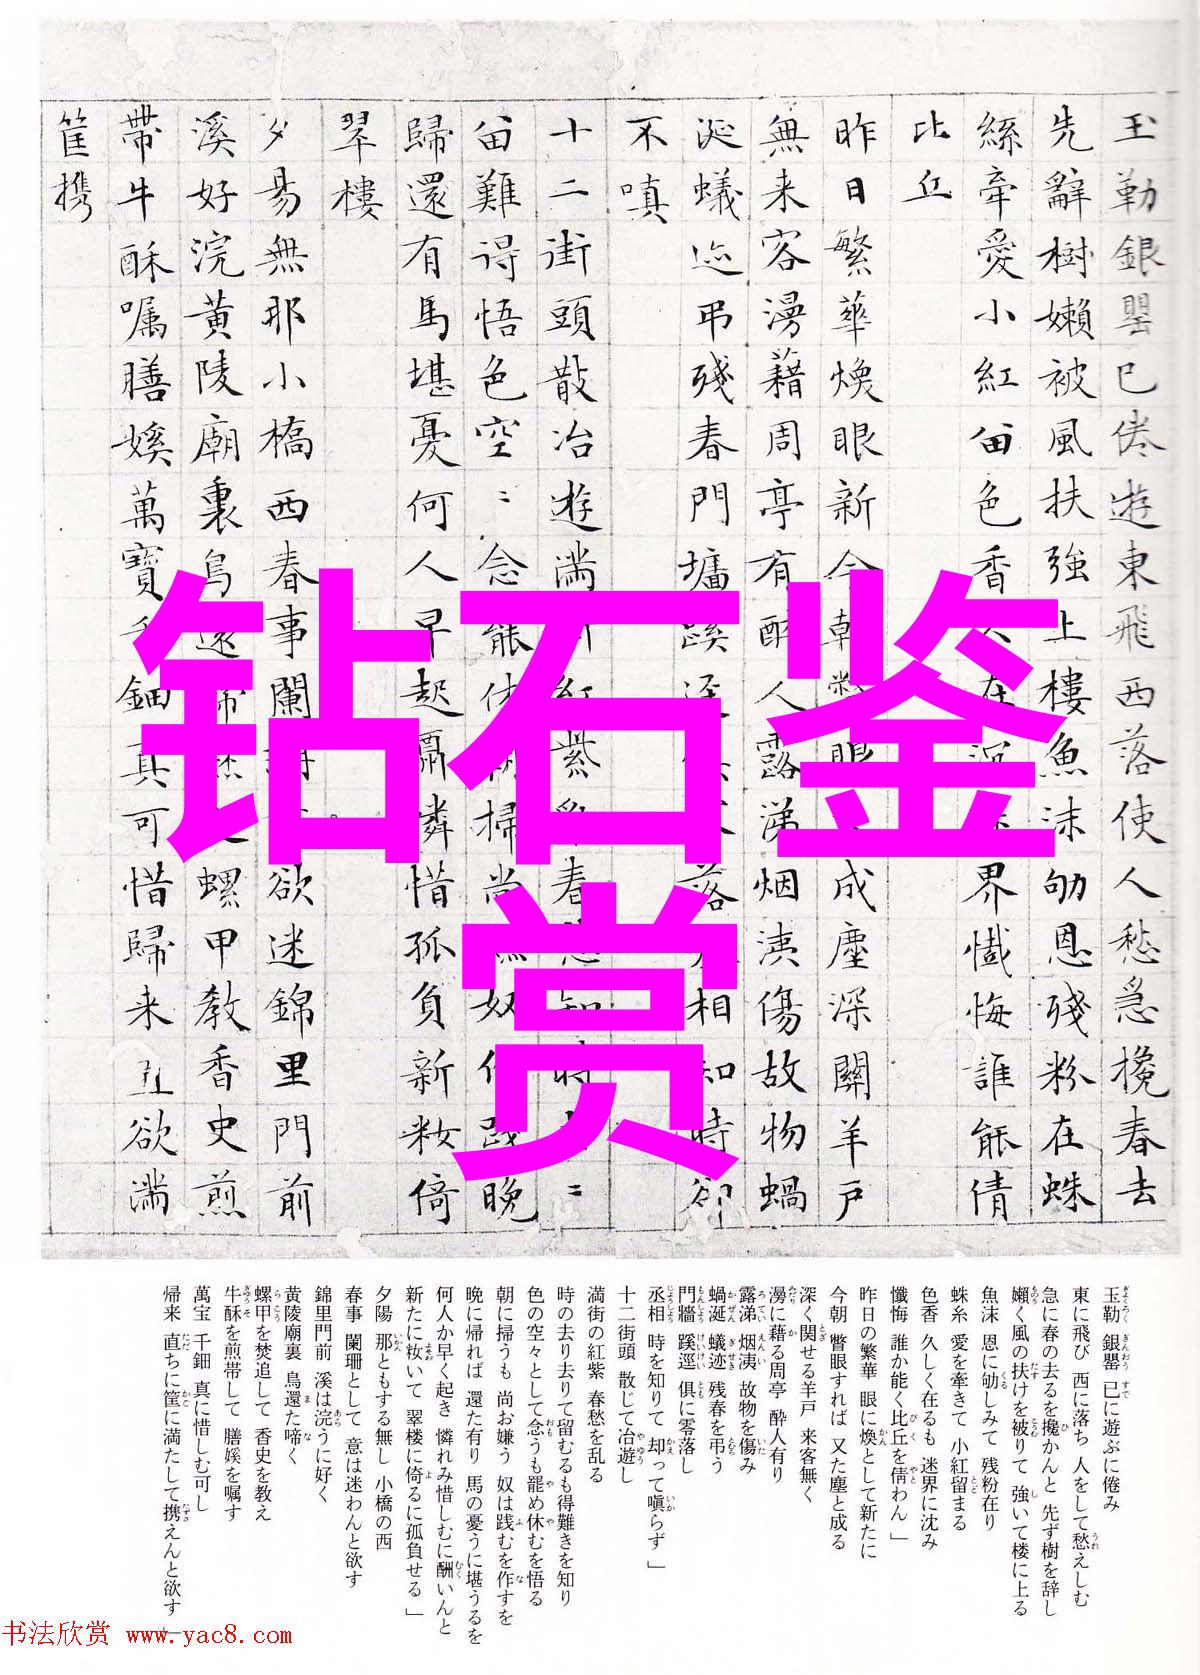 玉勒銀罌已倦遊東飛西落使人愁急攙春去
先辭樹嬾被風扶強上樓魚沫劬恩殘粉在蛛
絲牽愛小紅留色香在界懺悔誰能倩
比丘
昨日繁華煥眼新今朝眼成塵深關羊戶
無来客漫藉周亭有醉人露涕烟洟傷故物蝸
涎蟻迹弔殘春門墻蹊落相知時卻
不嗔
十二街頭散冶遊滿紅紫春知時〻
留難得悟色空〻念罷休掃尚奴作踐晚
歸還有馬堪憂何人早起酬憐惜孤負新粧倚
翠樓
夕易無那小橋西春事闌欲迷錦里門前
溪好浣黄陵廟裏鳥還啼螺甲教香史煎
帶牛酥囑膳媛萬寶千鈿真可惜歸来直欲滿
筐携
钻石鉴
赏
玉勒 銀罌 已に遊ぶに倦み
東に飛び 西に落ち 人をして愁えしむ
急に春の去るを攙かんと 先ず樹を辞し
嬾く風の扶けを被りて 強いて楼に上る
魚沫 恩に劬しみて 残粉在り
蛛糸 愛を牽きて 小紅留まる
色香 久しく在るも 迷界に沈み
懺悔 誰か能く比丘を倩わん」
昨日の繁華 眼に煥として新たに
今朝 瞥眼すれば 又た塵と成る
深く関せる羊戸 来客無く
漫に藉る周亭 酔人有り
露涕 烟洟 故物を傷み
蝸涎 蟻迹 残春を弔う
門牆 蹊逕 俱に零落し
丞相 時を知りて 却って嗔らず」
十二街頭 散じて冶遊し
満街の紅紫 春愁を乱る
時の去り去りて留むるも得難きを知り
色の空々として念うも罷め休むを悟る
朝に掃うも 尚お嫌う 奴は践むを作すを
晩に帰れば 還た有り 馬の憂うに堪うるを
何人か早く起き 憐れみ惜しむに酬いんと
新たに粧いて 翠楼に倚るに孤負せる」
夕陽 那ともする無し 小橋の西
春事 闌珊として 意は迷わんと欲す
錦里門前 溪は浣うに好く
黄陵廟裏 鳥還た啼く
螺甲を焚追して 香史を教え
牛酥を煎帯して 膳媛を嘱す
萬宝 千鈿 真に惜しむ可し
帰来 直ちに筐に満たして携えんと欲す」
书法欣赏 www.yac8.com